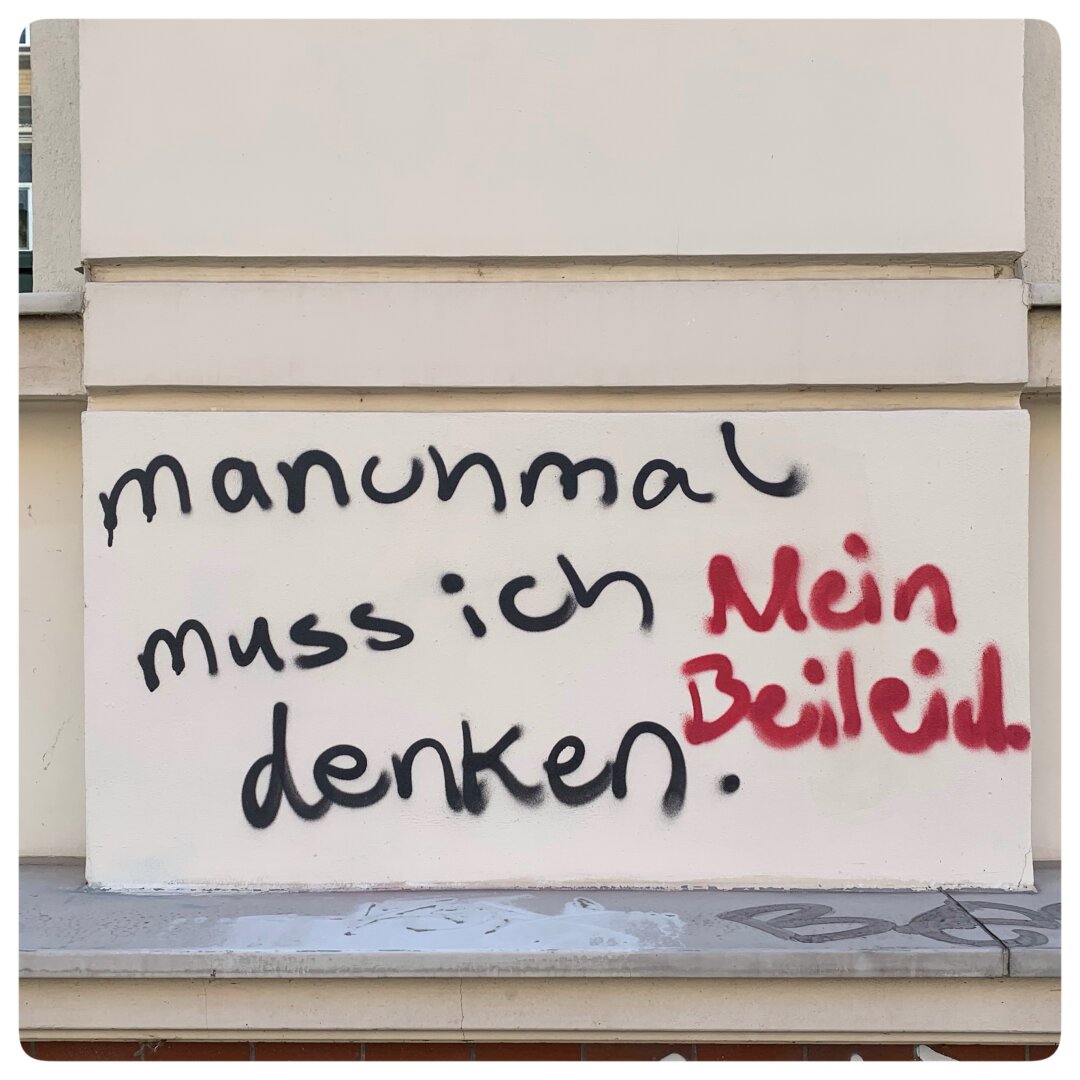 manchmal
muss ich
denken.
Mein
Beileid.